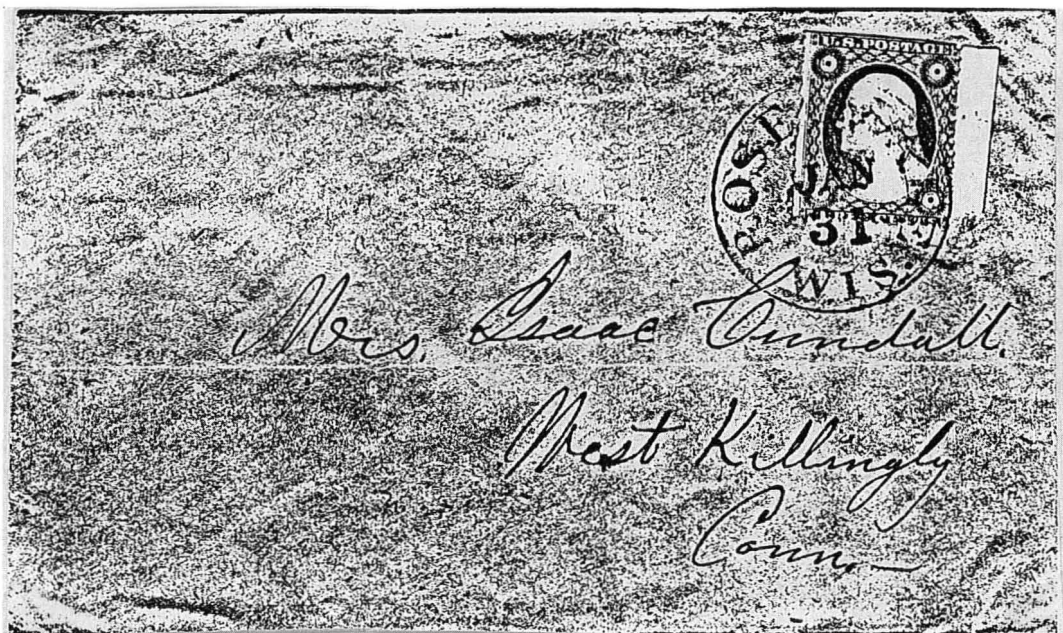 U.S. POSTAGE
ROSE
JAN
31
WIS.
Mrs. Isaac Cundall.
West Killingly
Conn.